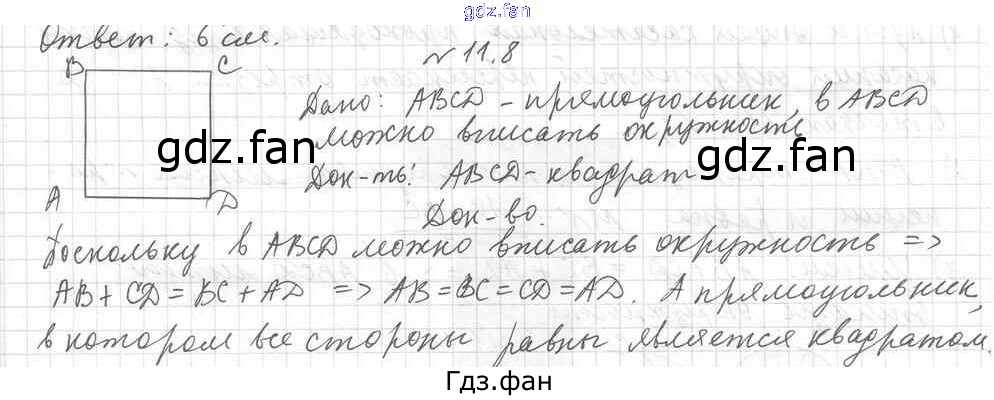 gdz.fan
Ответ: 6 см.
№ 11.8
B C
Дано: ABCD - прямоугольник, в ABCD
можно вписать окружность
gdz.fan gdz.fan
Док-ть: ABCD - квадрат
A D
Док-во.
Поскольку в ABCD можно вписать окружность =>
AB + CD = BC + AD => AB = BC = CD = AD. А прямоугольник,
в котором все стороны равны является квадратом.
Гдз.фан